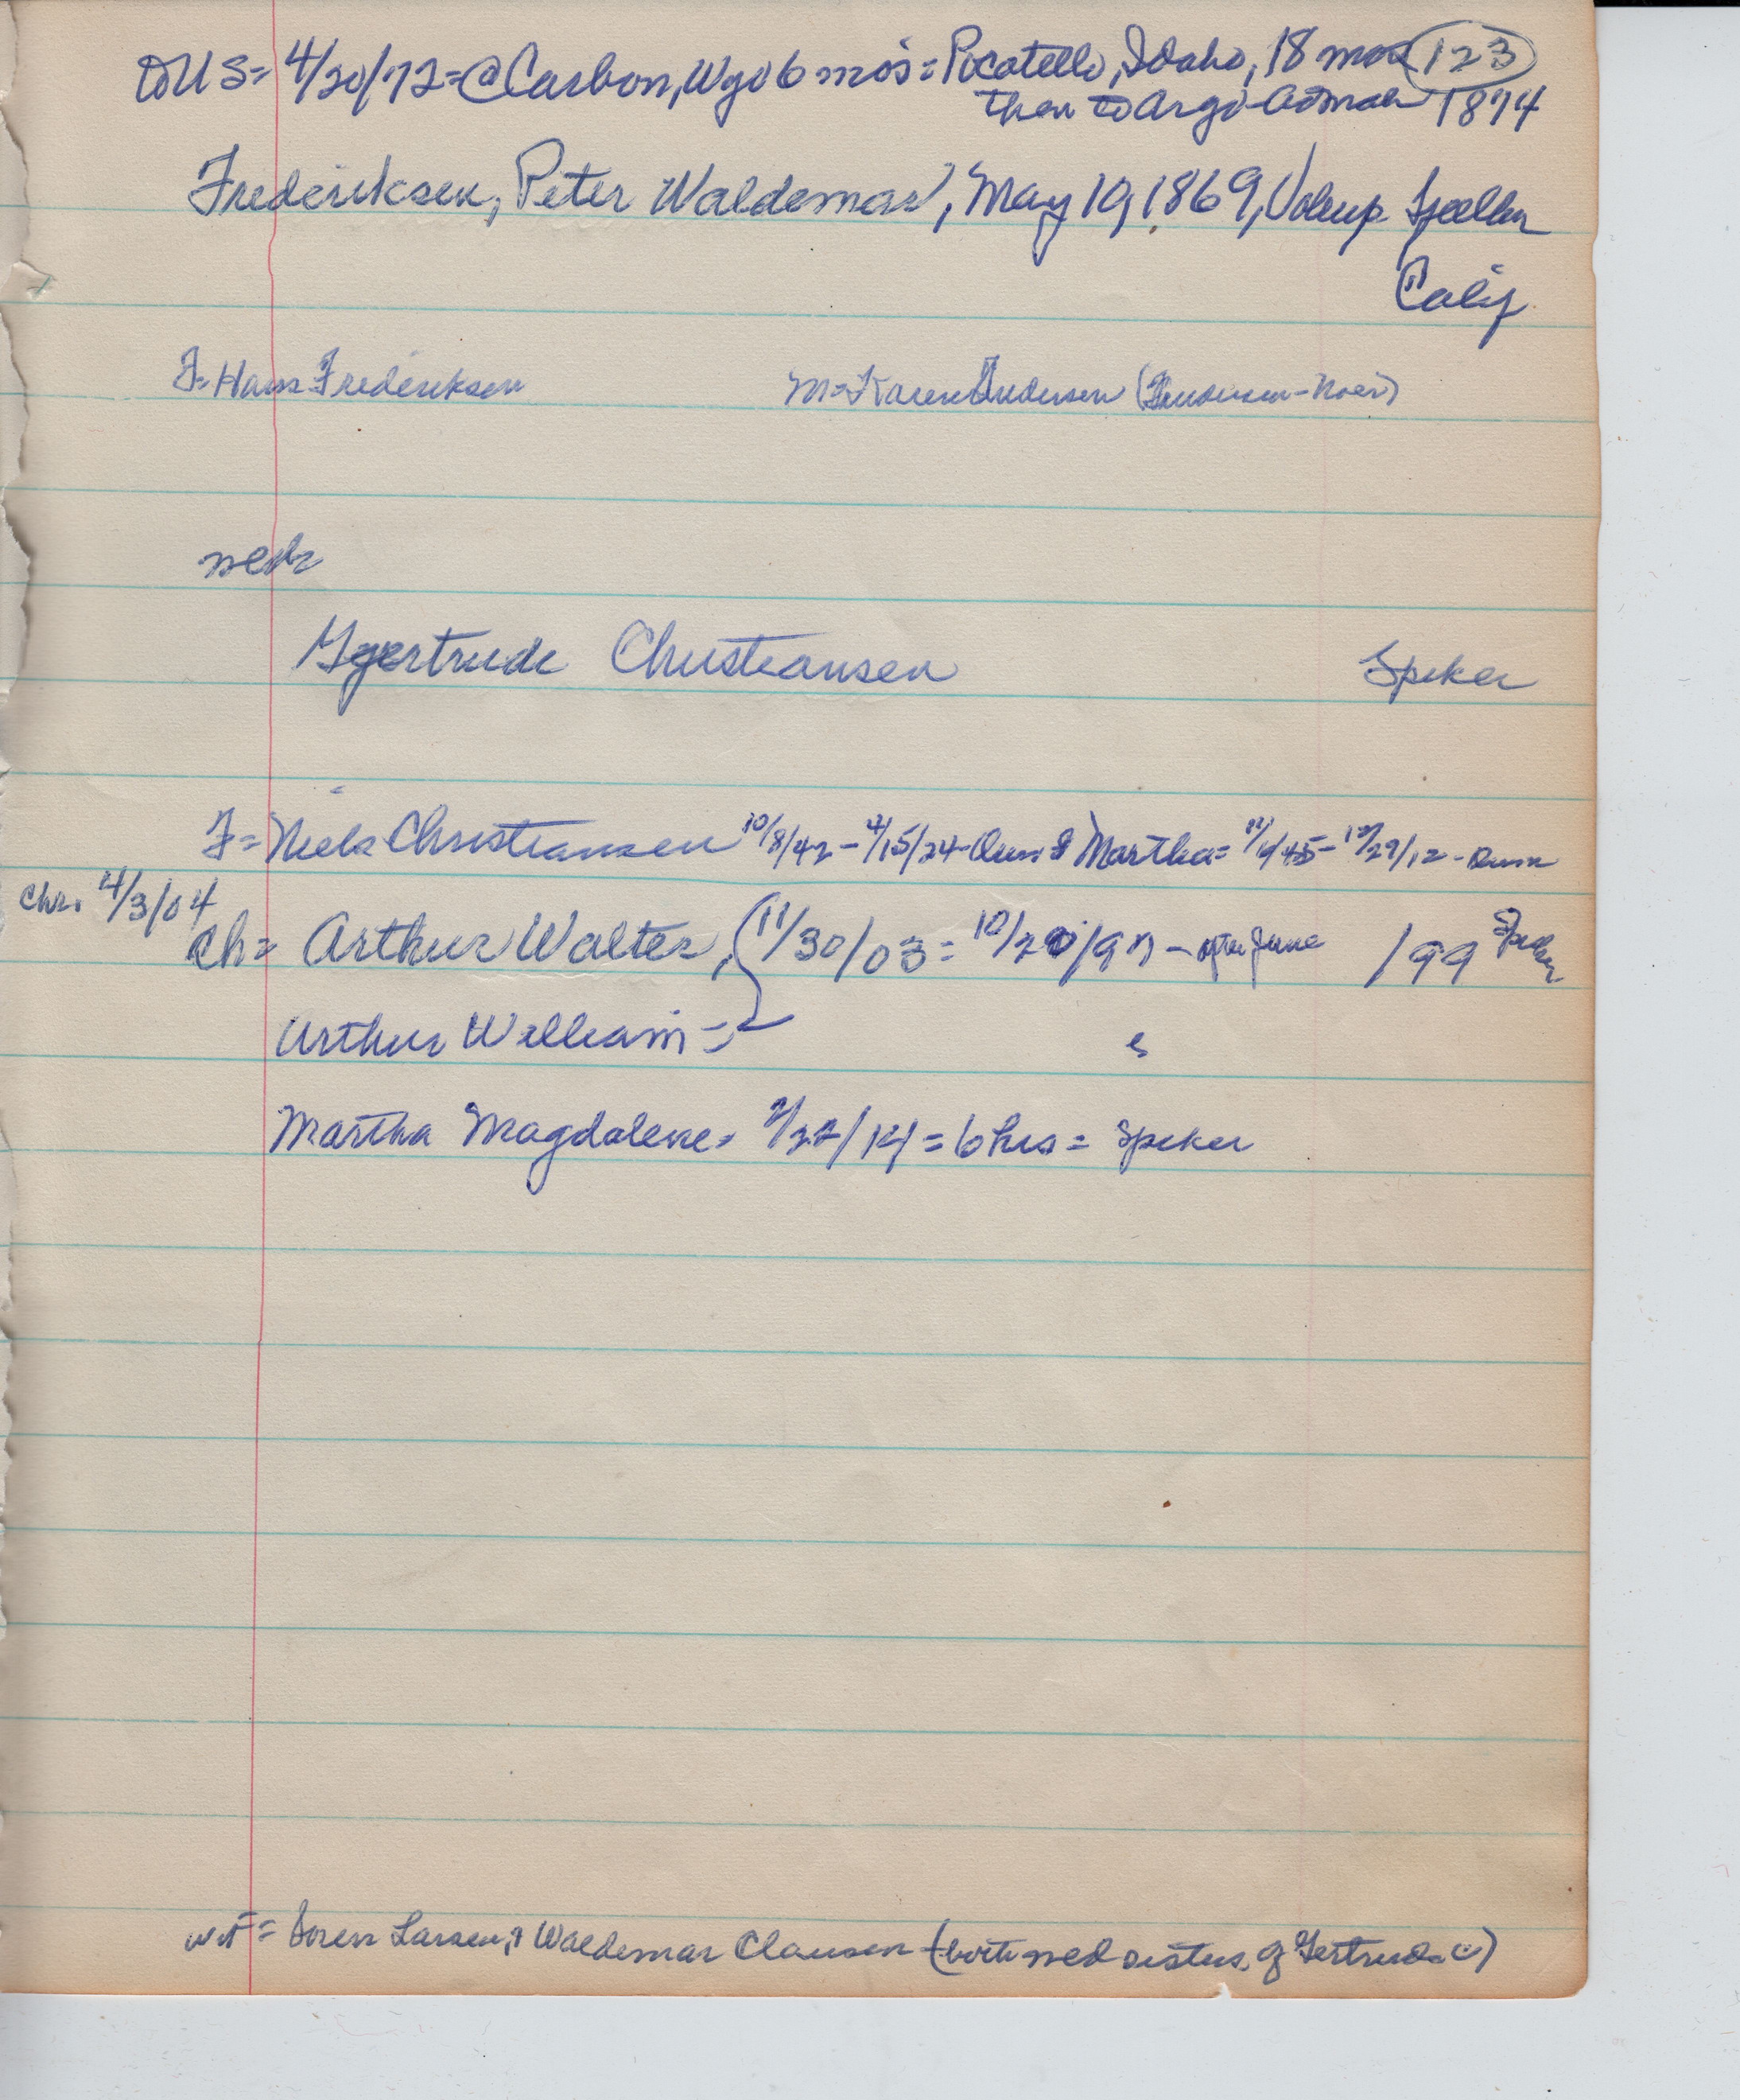 to US = 4/20/72 = @ Carbon, Wyo 6 mos = Pocatello, Idaho, 18 mos 123
then to Argo 1874
Frederiksen, Peter Waldemar, May 10, 1869,
Calif
F = Hans Frederiksen M = Karen Andersen
Gertrude Christiansen Spiker
F = Niels Christiansen 10/8/42 - 4/15/24 & Martha = 12/29/12
Chr. 4/3/04
Ch = Arthur Walter, 11/30/03 = 10/20/97 - after June /99 Spiker
Arthur William -
Martha Magdalene = 2/22/14 = 6 hrs = Spiker
wit = Soren Larsen, & Waldemar Clausen (both wed sisters of Gertrude C)